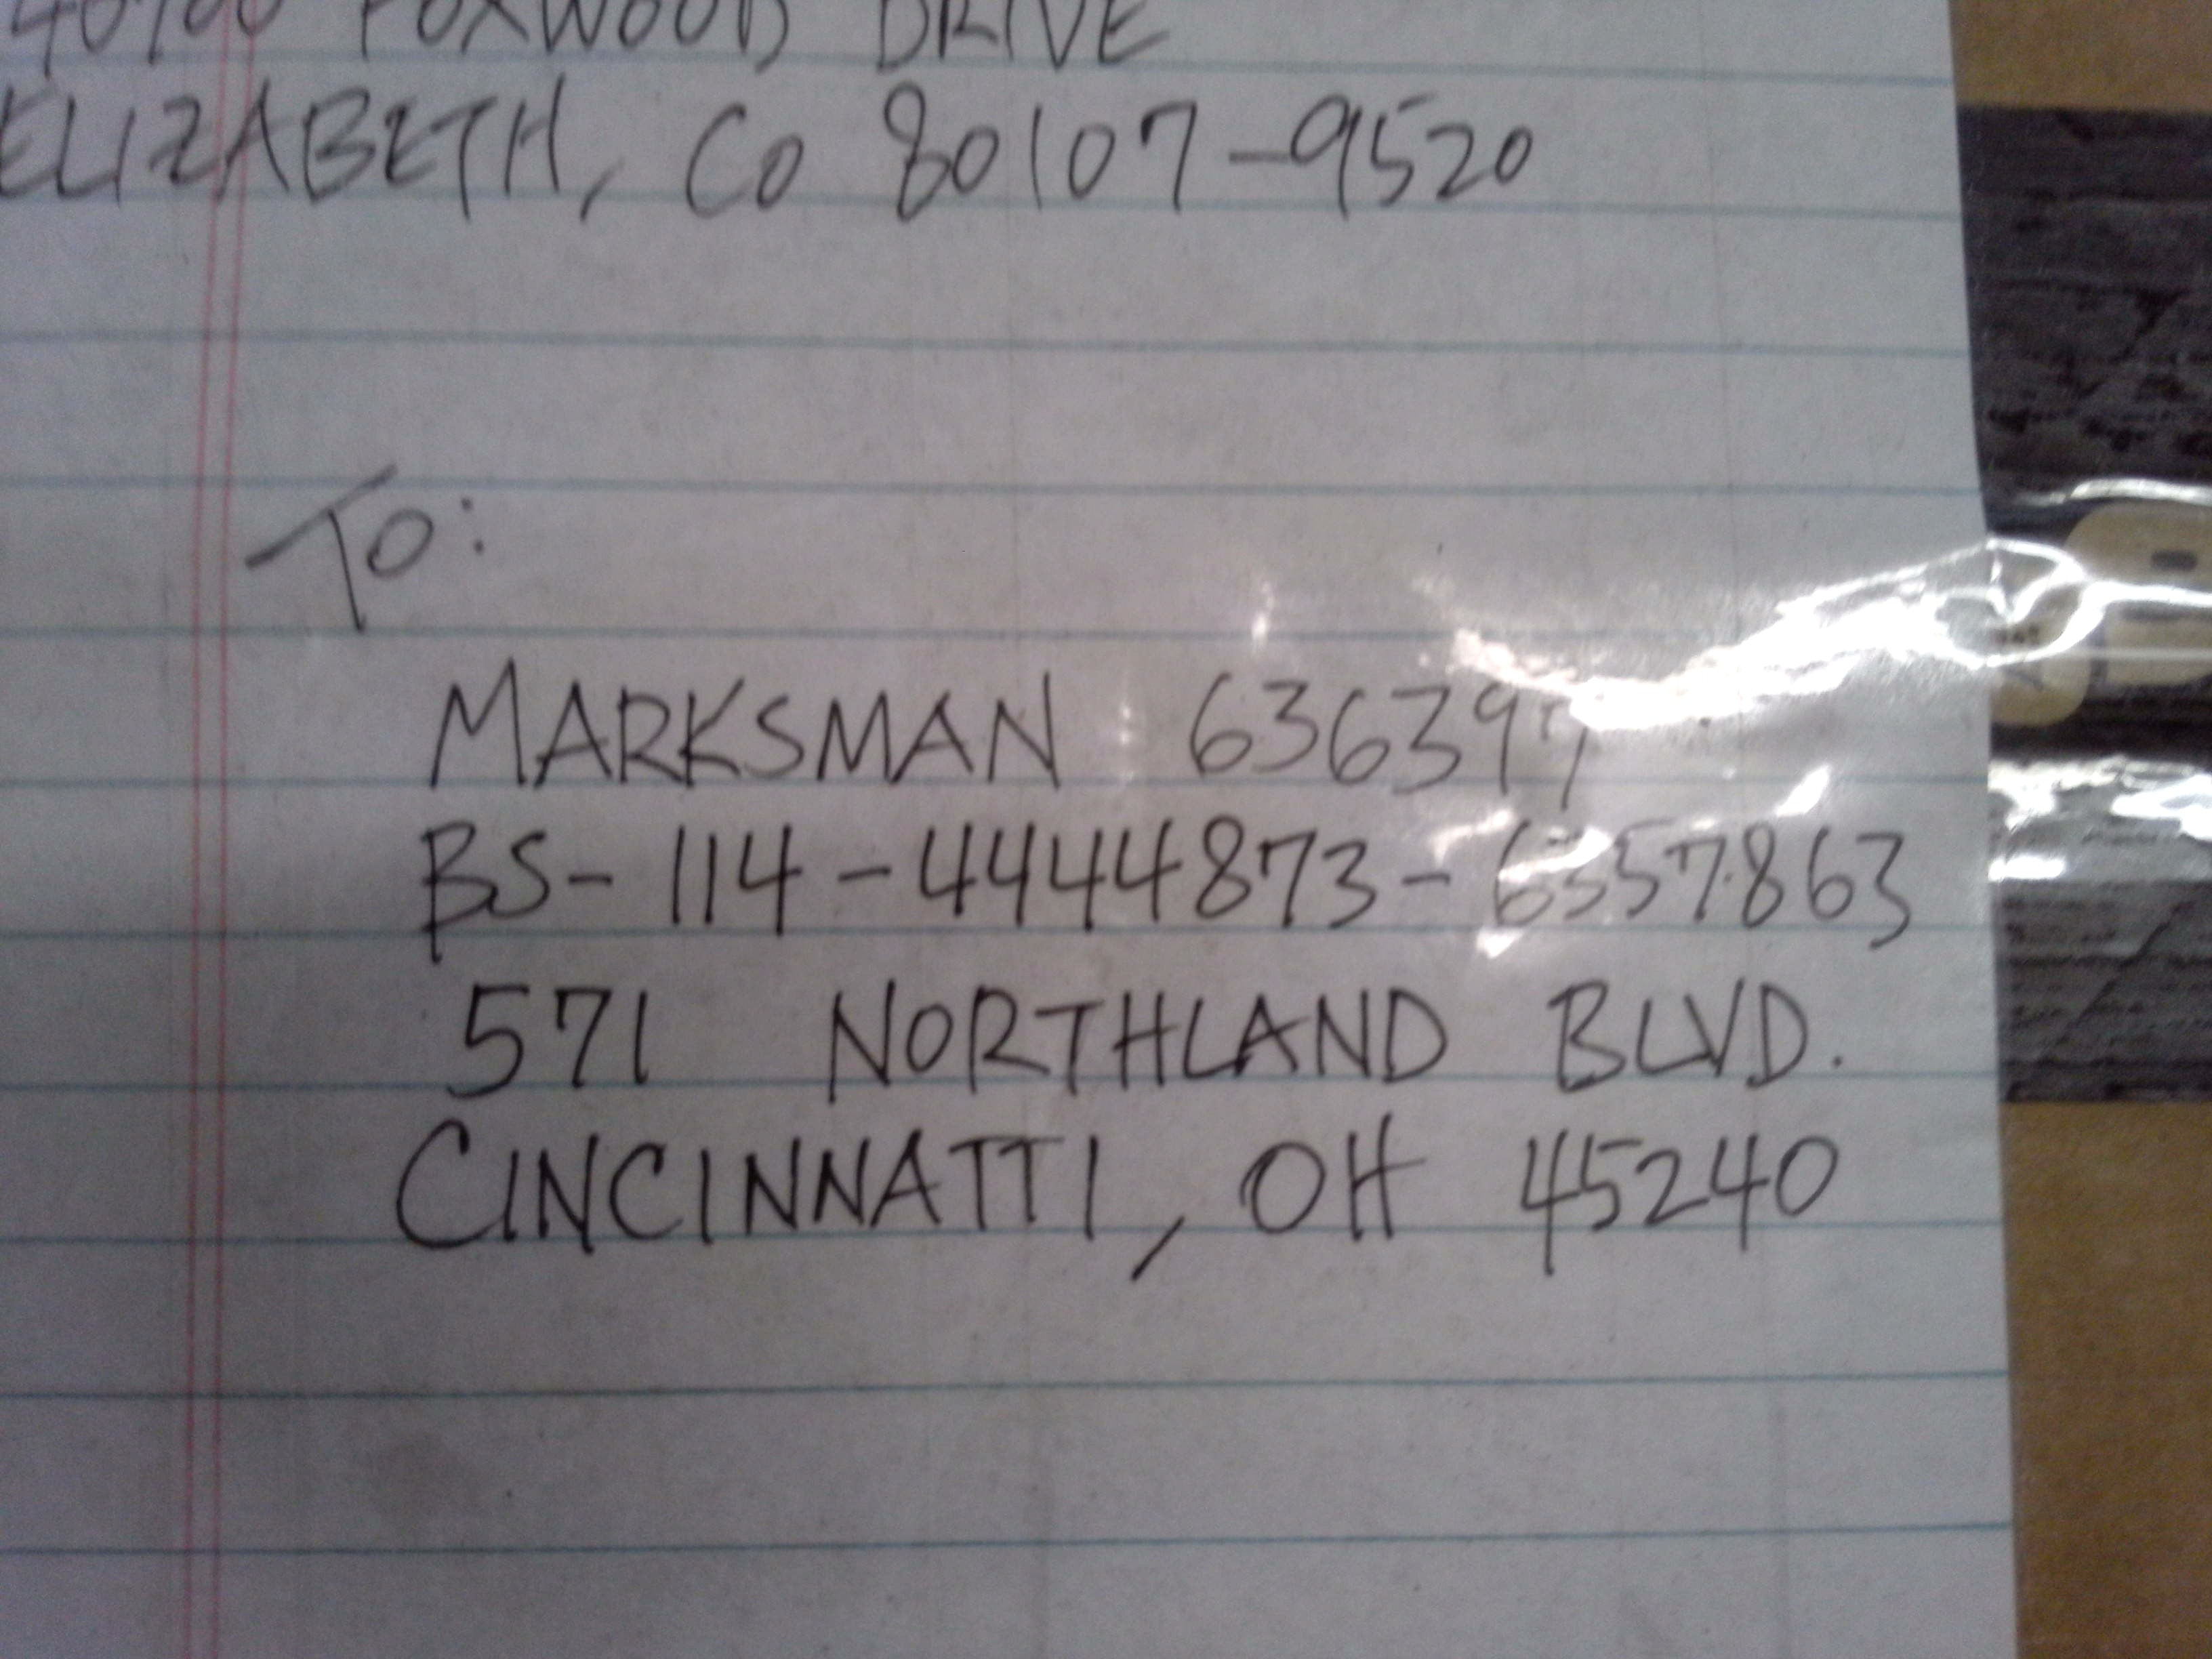 FOXWOOD DRIVE
ELIZABETH, CO 80107-9520
TO:
MARKSMAN
BS-114-4444873-6357863
571 NORTHLAND BLVD.
CINCINNATTI, OH 45240